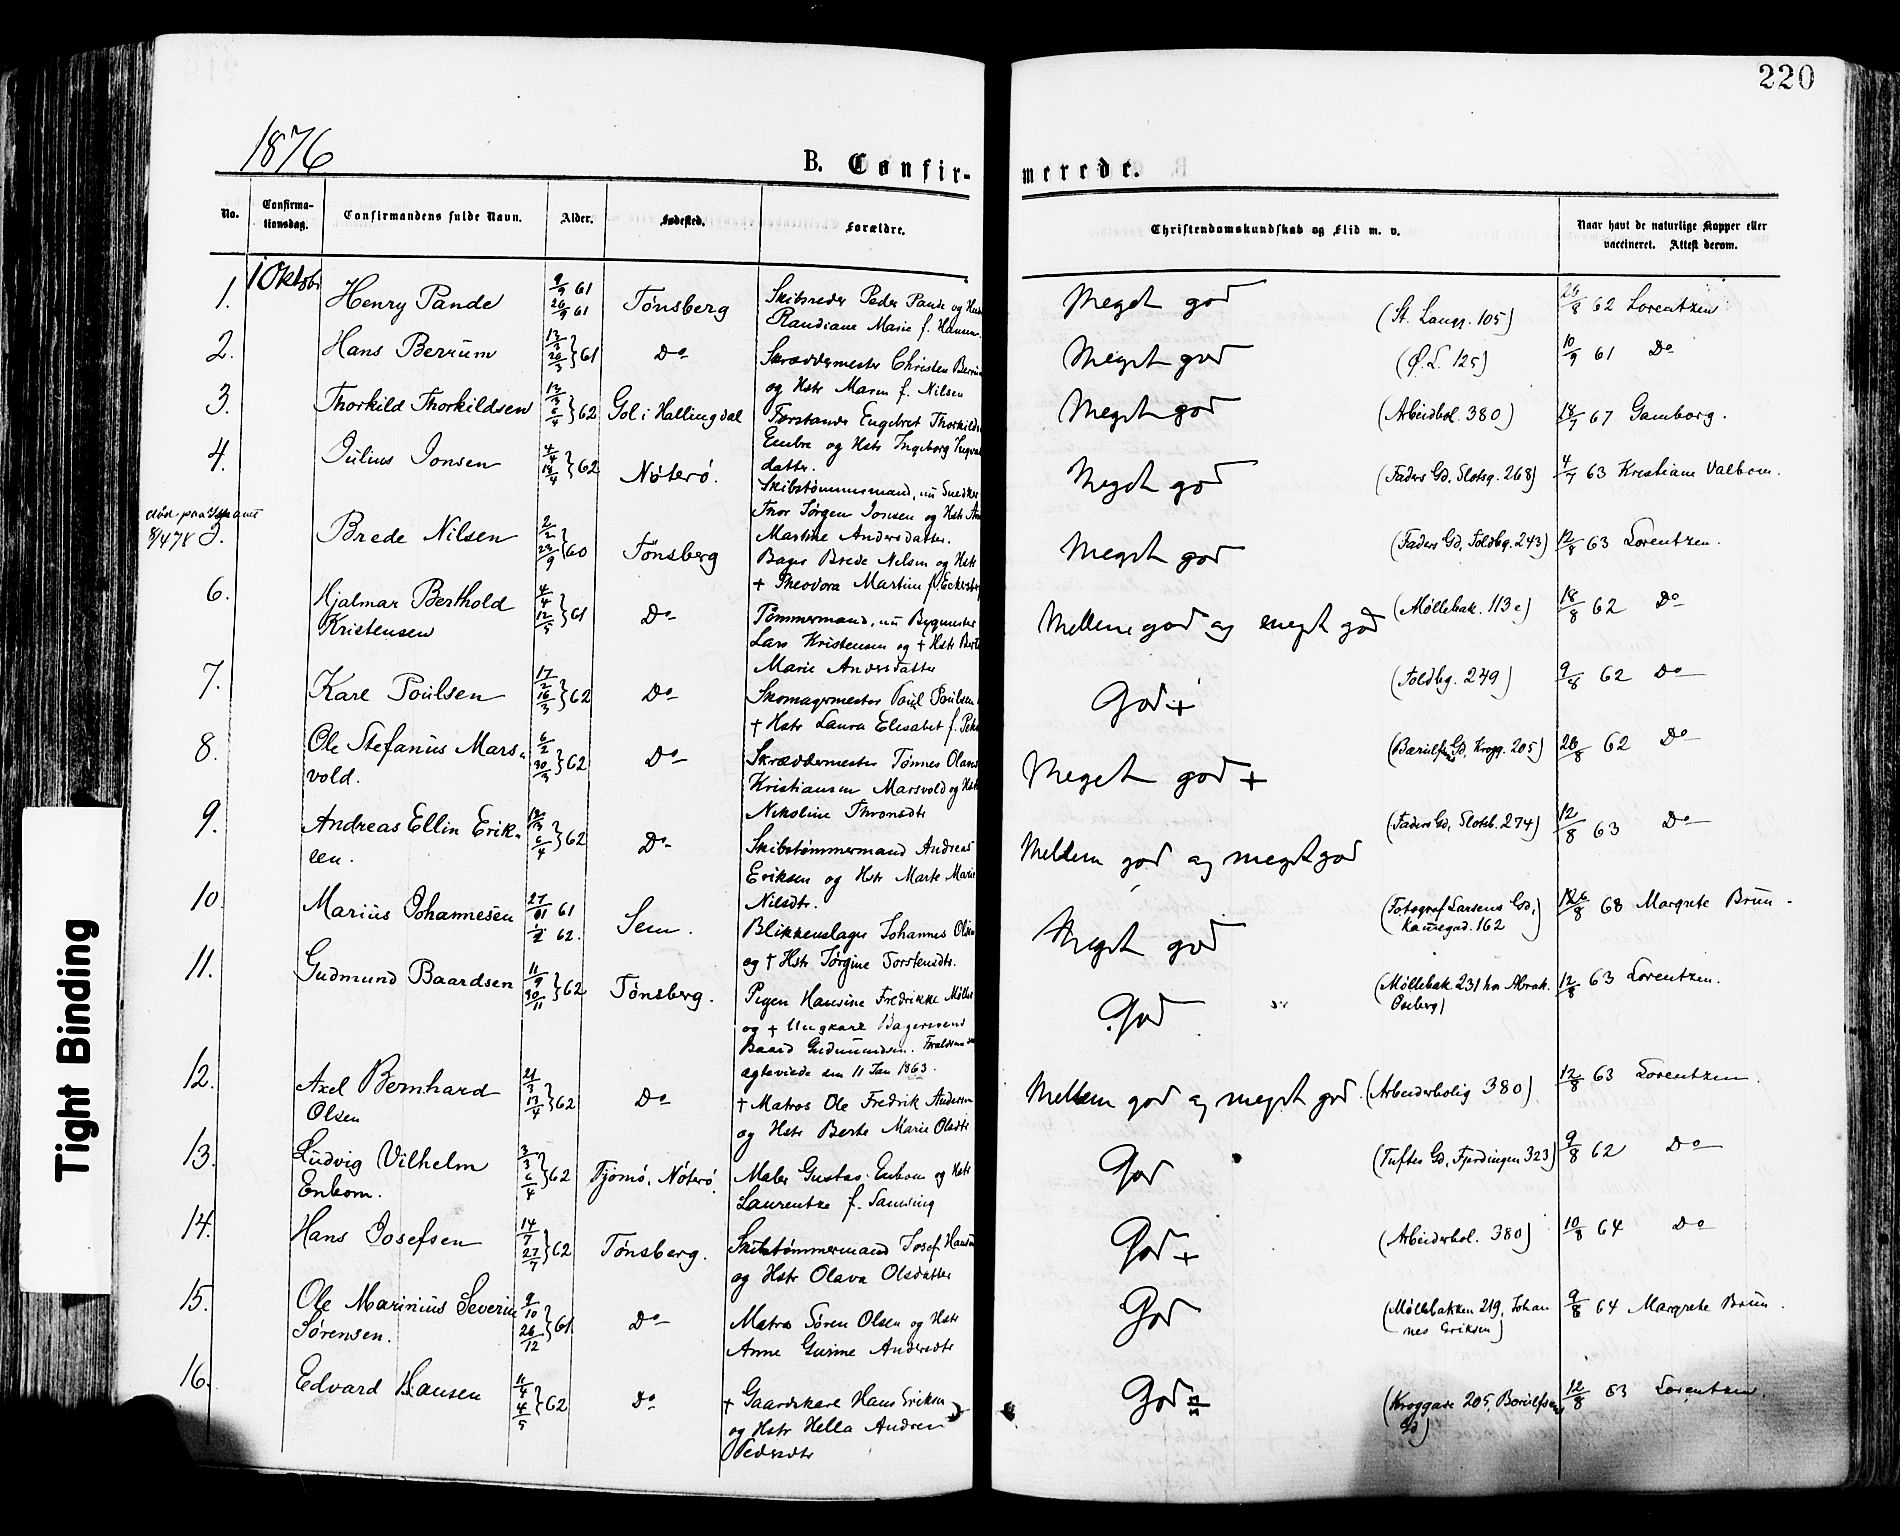 220
1876
B. Confir-
merede.
No.
Confirma-
tionsdag.
Confirmandens fulde Navn.
Alder.
Fødested.
Forældre.
Christendomskundskab og Flid m. v.
Naar havt de naturlige Kopper eller
vaccineret. Attest derom.
1 Oktobr
1. Henry Pande 9/9 61 Tønsberg Skibsreder Peder Pande og
26/9 61 Randiane Marie f. Hansen
Meget god (St. Langg. 105) 26/8 62 Lorentzen
2. Hans Berrum 61 Do Skræddermester Christen
og Hstr Maren f. Nilsen
Meget god (Ø.L. 125) 10/9 61 Do
3. Thorkild Thorkildsen 62 Gol i Hallingdal Engebret
og Hstr Ingeborg
datter.
Meget god (Arbeidbol. 380) 18/7 67 Gamborg.
4. Julius Jonsen 4/4 62 Nøterø. Skibstømmermand, nu
Thor Jørgen Jonsen og Hstr
Martine Andersdatter.
Meget god (Faders Gd, Slotsg. 268) 4/7 63 Kristiane Valbom.
død paa
8/4 78
Brede Nilsen 2/2 60 Tønsberg Bager Brede Nilsen og Hstr
+ Theodora Martine f.
Meget god (Faders Gd, Toldbg. 243) 12/8 63 Lorentzen.
6. Hjalmar Berthold 4/4 61 Do Tømmermand, nu Bygmester
Kristensen Lars Kristensen og + Hstr
Marie Andersdatter
Mellem god og meget god (Møllebak. 113 e) 18/8 62 Do
7. Karl Poulsen 17/2 16/3 62 Do Skomagermester Poul Poulsen
+ Hstr Laura Elisabet f.
God + (Toldbg. 249) 9/8 62 Do
8. Ole Stefanus Mars- 6/2 30/3 62 Do Skræddermester Tønnes
vold. Kristiansen Marsvold og Hstr
Nikoline Thronsdtr
Meget god + (Gd, Krogg. 205) 26/8 62 Do
9. Andreas Ellin Erik- 6/4 62 Do Skibstømmermand Andreas
sen. Eriksen og Hstr Marte Marie
Nilsdtr.
Mellem god og meget god (Faders Gd, Slotsb. 274) 12/8 63 Do
10. Marius Johannesen 61 Sem. Blikkenslager Johannes Olsen
62. og + Hstr Jørgine Torstensdtr.
Meget god (Fotograf Larsens Gd, 68 Margrete Brun-
162
11. Gudmund Baardsen 11/9 30/11 62 Tønsberg. Pigen Hansine Fredrikke Møller
og + Ungkarl Bagersvend
Baard Gudmundsen.
ægteviede den 11 Jan 1863.
God (Møllebak. 231 hos 12/8 63 Lorentzen.
12. Axel Bernhard 21/3 13/4 62 Do + Matros Ole Fredrik Andersen
Olsen og Hstr Berte Marie Olsdtr
Mellem god og meget god. (Arbeiderbolig 380) 12/8 63 Lorentzen.
13. Ludvig Vilhelm 3/3 6/4 62 Tjømø, Nøterø. Maler Gustav Enbom og Hstr
Enbom. Laurentze f.
God (Tuftes Gd, Fjerdingen 323) 9/8 62 Do
14. Hans Josefsen 14/7 27/7 62 Tønsberg. Skibstømmermand Josef Hansen
og Hstr Olava Olsdatter
God + (Arbeiderbol. 380) 10/8 64 Do
15. Ole Marinius Severin 9/10 26/12 61 Do Matros Søren Olsen og Hstr
Sørensen. Anne Gurine Andersdtr
God (Møllebakken 219, Johan 9/8 64 Margrete Brun.
nes Eriksen)
16. Edvard Hansen 11/4 4/5 62 Do + Gaardskarl Hans Eriksen
og Hstr Hella Andrea
Pedersdtr
God (Kroggare 205, 12/8 63 Lorentzen.
Gd)
Tight Binding